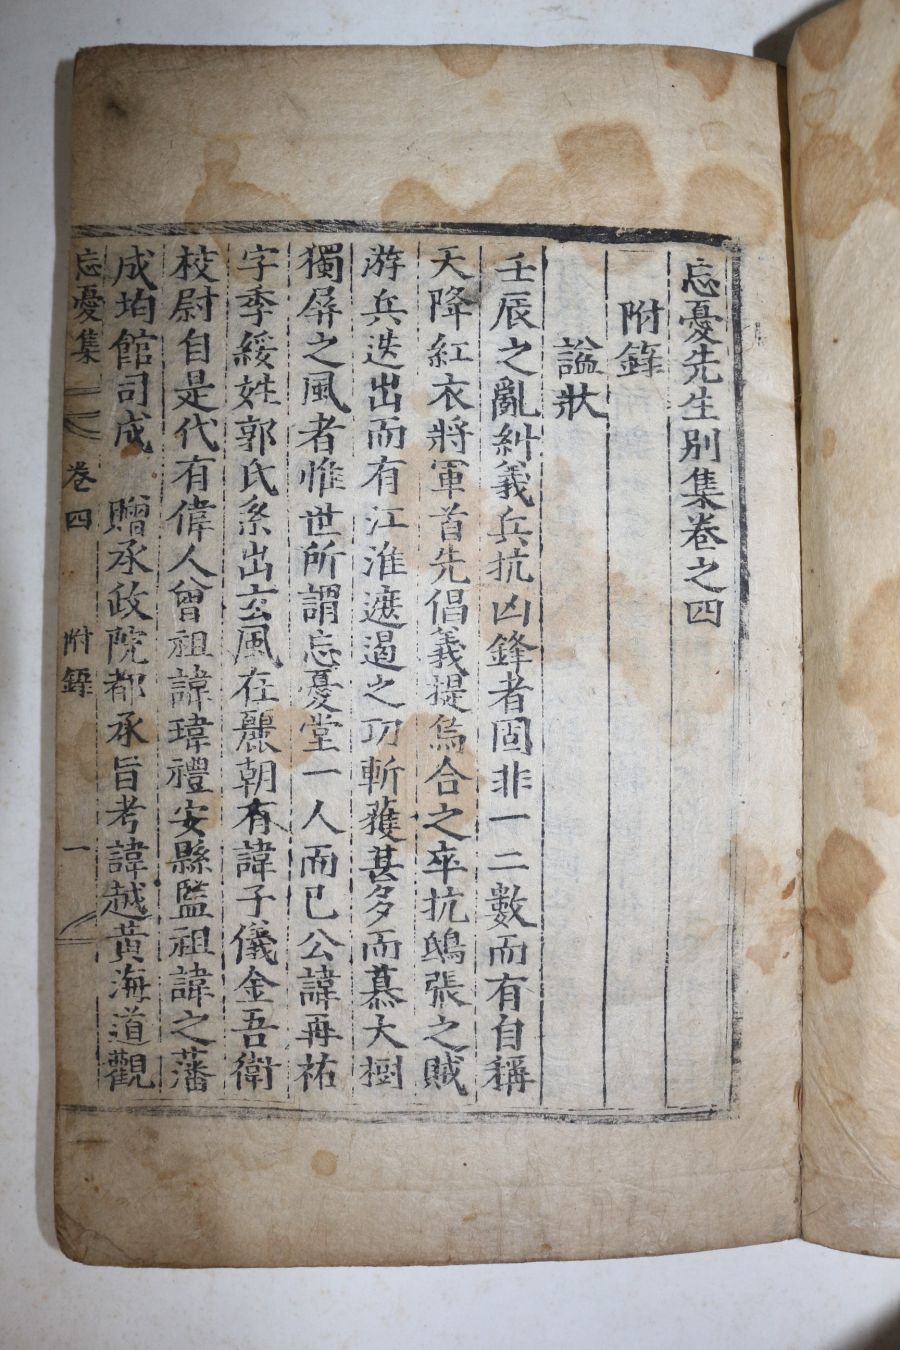 忘憂先生別集卷之四
附錄
諡狀
壬辰之亂糾義兵抗凶鋒者固非一二數而有自稱
天降紅衣將軍首先倡義提烏合之卒抗鴟張之賊
游兵迭出而有江淮遮遏之功斬獲甚多而慕大樹
獨屛之風者惟世所謂忘憂堂一人而已公諱再祐
字季綏姓郭氏系出玄風在麗朝有諱子儀金吾衛
校尉自是代有偉人曾祖諱瑋禮安縣監祖諱之藩
成均館司成 贈承政院都承旨考諱越黃海道觀
忘憂集 卷四 附錄 一